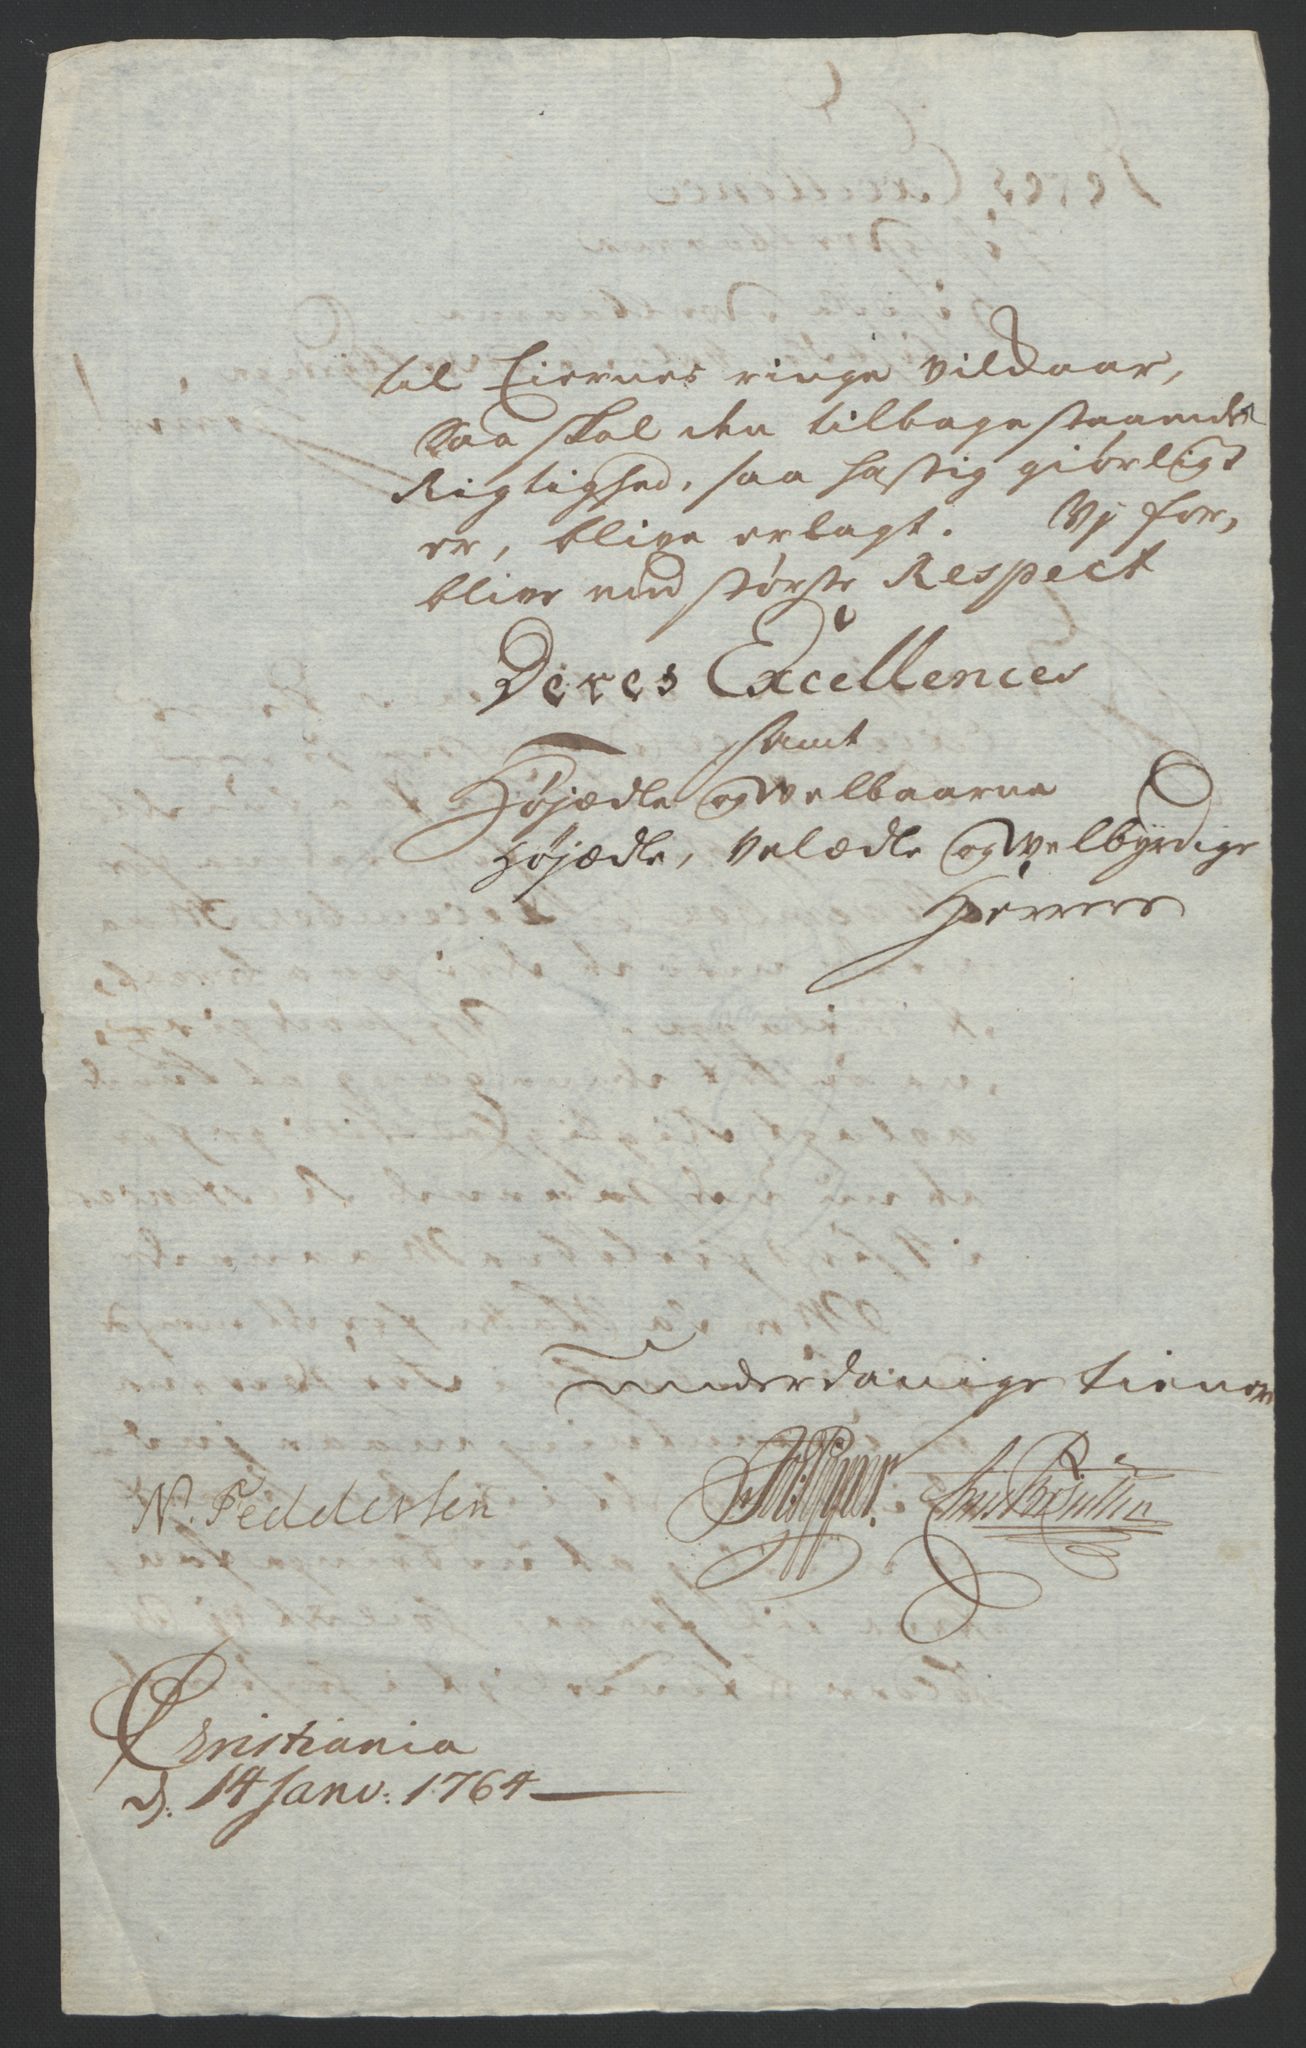 til Eiernes ringe vildaar,
saa skal den tilbagestaaende
Rigtighed, saa hastig giørligt
er, blive erlagt. Vj for,
blive med største Respect
Deres Excellences
samt
Højædle og Welbaarne
Højædle, Velædle og Welbyrdige
Herrers
Underdanige tienere
N. Feddersen
Christiania
d: 14 Janv: 1764